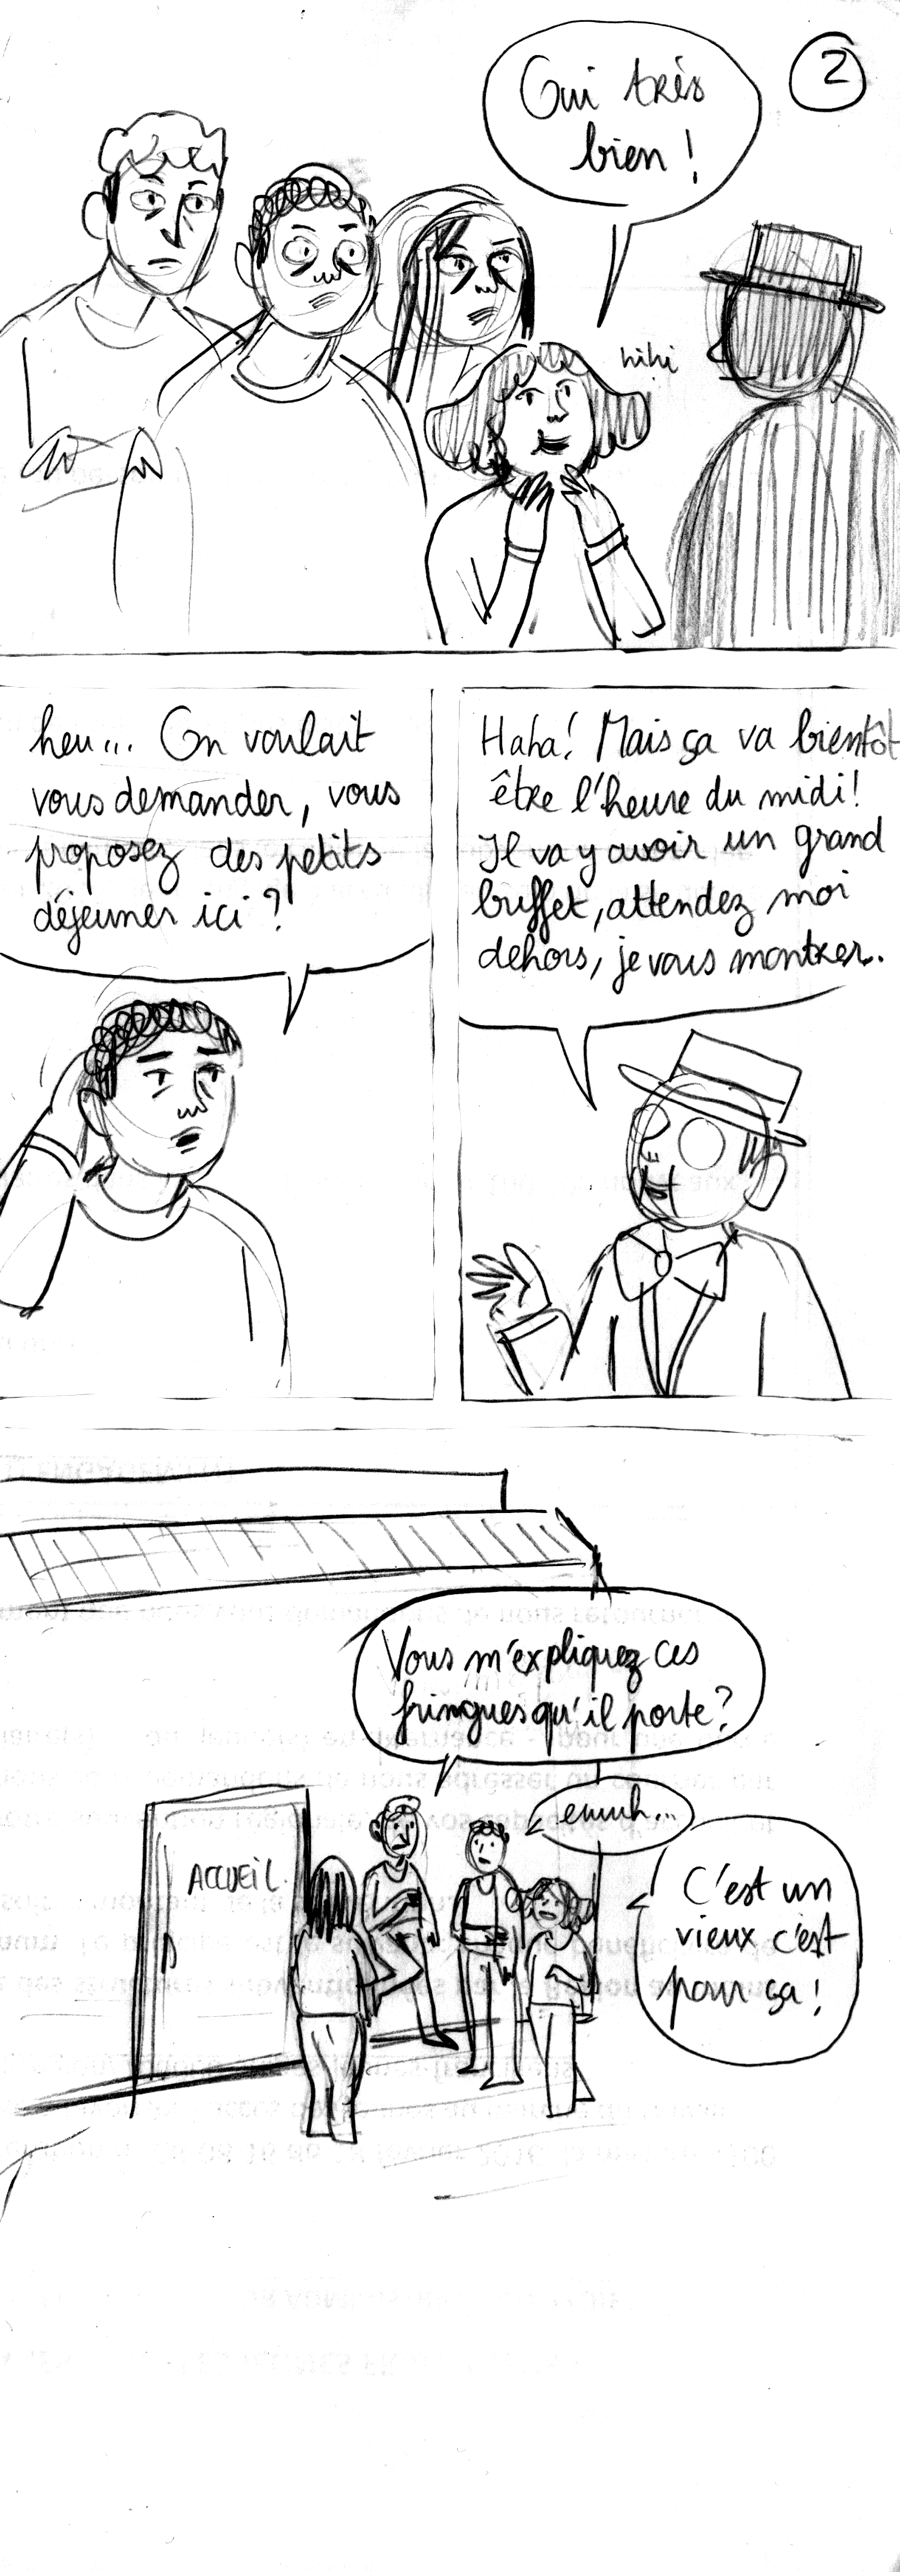 2
Oui très
bien !
hihi
heu... On voulait
vous demander, vous
proposez des petits
déjeuner ici ?
Haha! Mais ça va bientôt
être l'heure du midi!
Il va y avoir un grand
buffet, attendez moi
dehors, je vais montrer.
Vous m'expliquez ces
fringues qu'il porte?
ACCUEIL
euuuh...
C'est un
vieux c'est
pour ça !